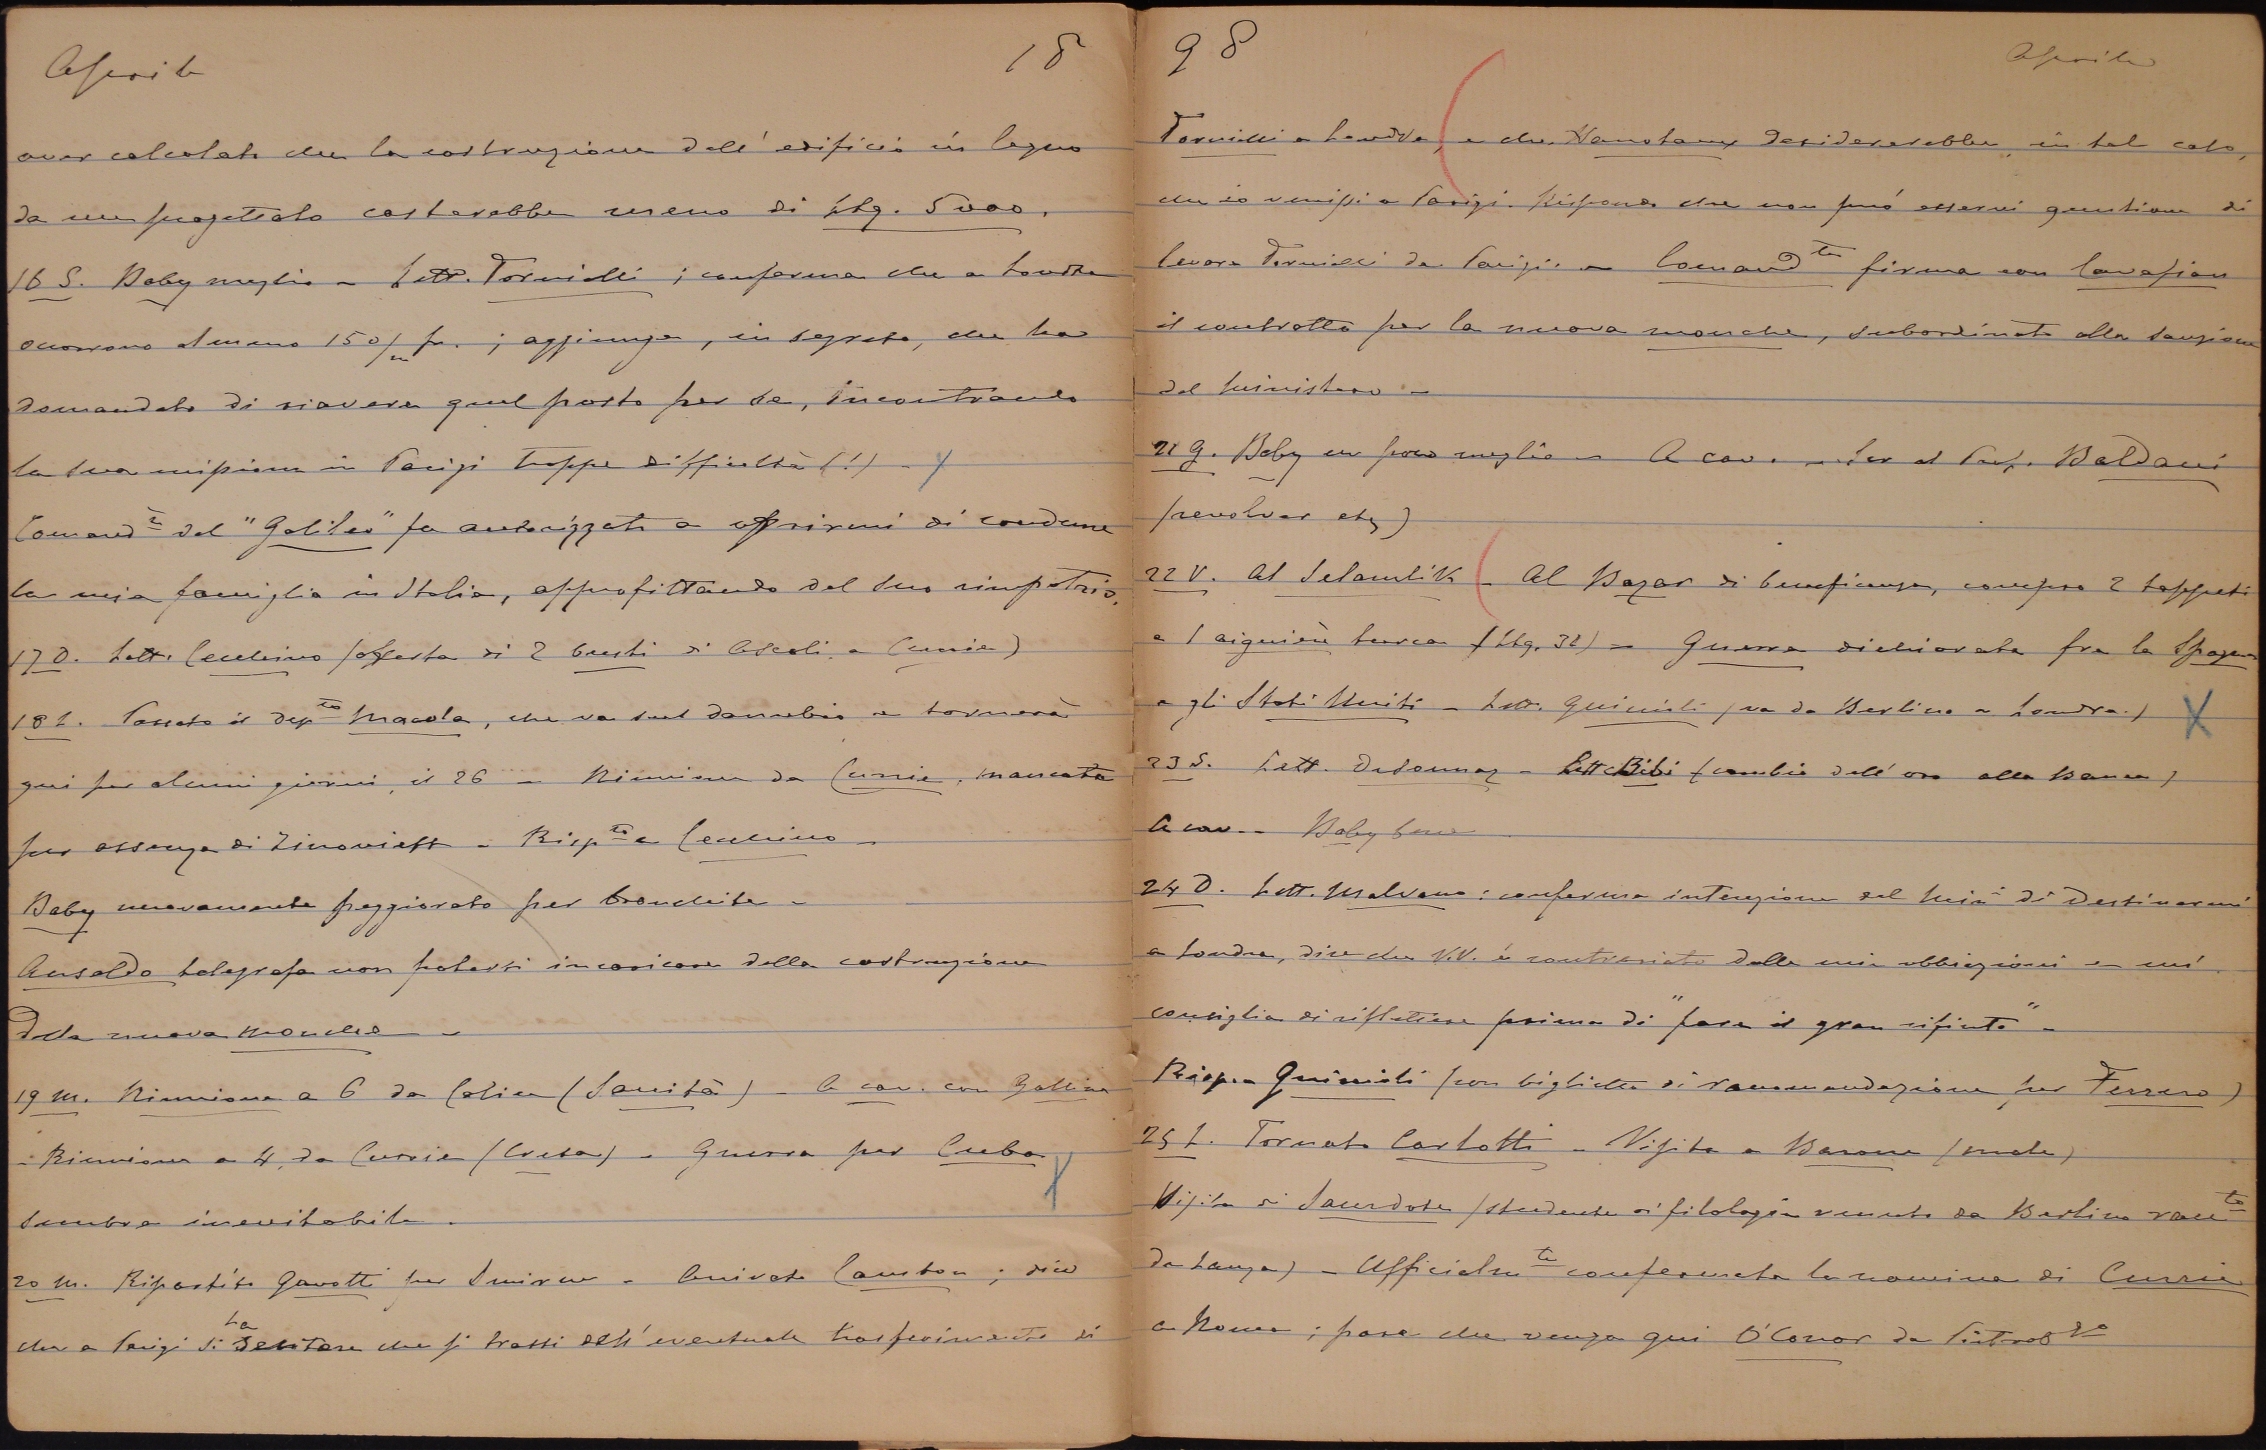 Aprile 18
aver calcolato che la costruzione dell'edificio in legno
da me progettato costerebbe meno di Ltq. 5000.
16 S. Baby meglio – Lett. Tornielli ; conferma che a Londra
occorrono almeno 150/m fr. ; aggiunge, in segreto, che ha
domandato di riavere quel posto per se, incontrando
la sua missione in Parigi troppe difficoltà (!) –
Comandte del "Galileo" fu autorizzato a offrirmi di condurre
la mia famiglia in Italia, approfittando del suo rimpatrio.
17 D. Lett. Cecchino (offerta di 2 busti di Ascoli a Currie)
18 L. Passato il depto Macola, che va sul Danubio e tornerà
qui per alcuni giorni, il 26 – Riunione da Currie, mancata
per assenza di Zinovieff – Rispto a Cecchino –
Baby nuovamente peggiorato per bronchite –
Ansaldo telegrafa non potersi incaricare della costruzione
della nuova mouche –
19 M. Riunione a 6 da Calice (Sanità) – A cav. con Gallina
– Riunione a 4, da Currie (Creta) – Guerra per Cuba
sembra inevitabile.
20 M. Ripartito Gavotti per Smirne – Arrivato Cambon ; dice
che a Parigi si ha sentore che si tratti dell'eventuale trasferimento di
98 Aprile
Tornielli a Londra, e che Hanotaux desidererebbe, in tal caso,
che io venissi a Parigi. Rispondo che non può esservi questione di
levare Tornielli da Parigi. – Comandte firma con Cavafian
il contratto per la nuova mouche, subordinato alla sanzione
del Ministero –
21 G. Baby un poco meglio – A cav. – Baldani
(revolver etc)
22 V. Al Selamlik – Al Bazar di beneficenza, compro 2 tappeti
e 1 aiguière turca (Ltq. 32) – Guerra dichiarata fra la Spagna
e gli Stati Uniti – Lett. Guiccioli (va da Berlino a Londra.)
23 S. Lett. Desonnaz – Lett Bibi (cambio dell'oro alla Banca)
A cav – Baby bene
24 D. Lett. Malvano : conferma intenzione del Minō di destinarmi
a Londra, dice che V.V. è contrariato dalle mie obbiezioni e mi
consiglia di riflettere prima di "fare il gran rifiuto" –
Risp. a Guiccioli (con biglietto di raccomandazione per Ferrero)
25 L. Tornato Carlotti – Visita a Barone (male)
Visita di Sacerdote (studente di filologia venuto da Berlino raccto
da Lanza) – Ufficialmte confermata la nomina di Currie
a Roma ; pare che venga qui O'Conor da Pietrobgo